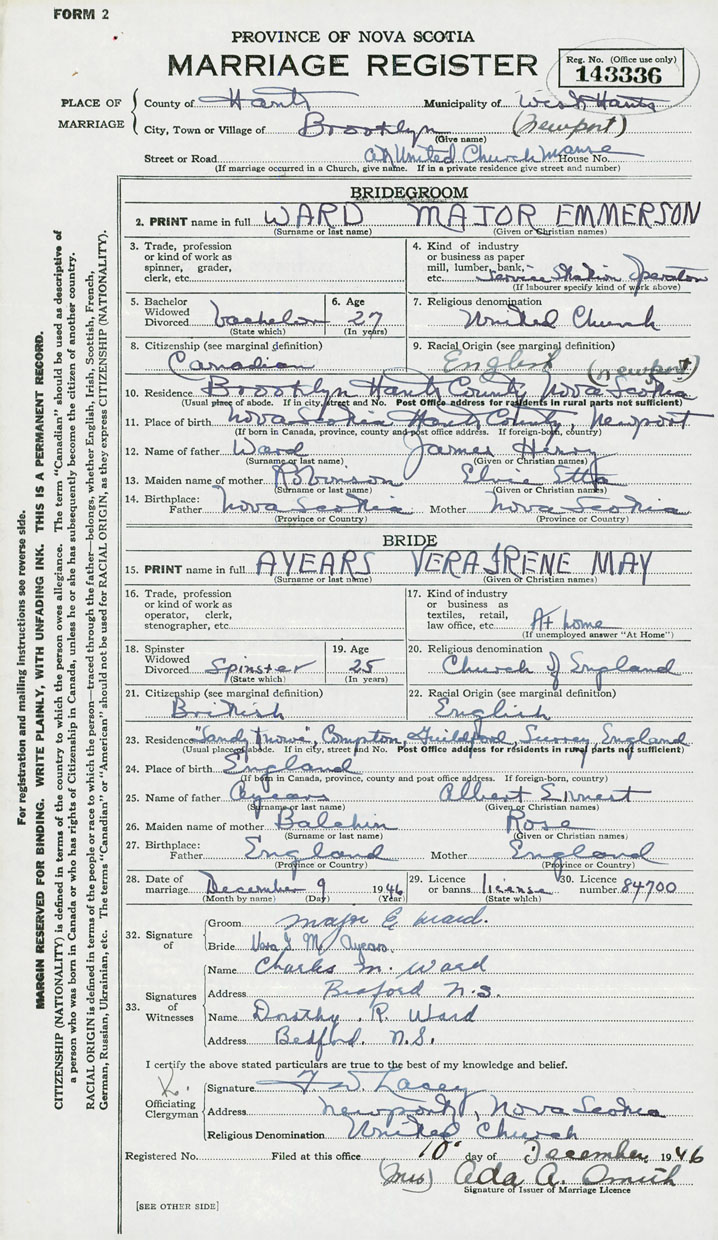 FORM 2
PROVINCE OF NOVA SCOTIA
MARRIAGE REGISTER
Reg. No. (Office use only)
143336
PLACE OF MARRIAGE
County of Hants Municipality of West Hants
City, Town or Village of Brooklyn (Newport)
(Give name)
Street or Road at United Church Manse House No.
(If marriage occurred in a Church, give name. If in a private residence give street and number)
BRIDEGROOM
2. PRINT name in full WARD MAJOR EMMERSON
(Surname or last name) (Given or Christian names)
3. Trade, profession or kind of work as spinner, grader, clerk, etc.
4. Kind of industry or business as paper mill, lumber, bank, etc. Service Station Operator
(If labourer specify kind of work above)
5. Bachelor Widowed Divorced bachelor
(State which)
6. Age 27
(In years)
7. Religious denomination
United Church
8. Citizenship (see marginal definition)
Canadian
9. Racial Origin (see marginal definition)
English
(Newport)
10. Residence Brooklyn Hants County Nova Scotia
(Usual place of abode. If in city, street and No. Post Office address for residents in rural parts not sufficient)
11. Place of birth Nova Scotia Hants County, Newport
(If born in Canada, province, county and post office address. If foreign-born, country)
12. Name of father Ward James Henry
(Surname or last name) (Given or Christian names)
13. Maiden name of mother Robinson Elvie Etta
(Surname or last name) (Given or Christian names)
14. Birthplace: Father Nova Scotia Mother Nova Scotia
(Province or Country) (Province or Country)
BRIDE
15. PRINT name in full AYEARS VERA IRENE MAY
(Surname or last name) (Given or Christian names)
16. Trade, profession or kind of work as operator, clerk, stenographer, etc.
17. Kind of industry or business as textiles, retail, law office, etc. At home
(If unemployed answer "At Home")
18. Spinster Widowed Divorced Spinster
(State which)
19. Age 25
(In years)
20. Religious denomination
Church of England
21. Citizenship (see marginal definition)
British
22. Racial Origin (see marginal definition)
English
23. Residence "Sandy , Compton, Guildford, Surrey, England
(Usual place of abode. If in city, street and No. Post Office address for residents in rural parts not sufficient)
24. Place of birth England
(If born in Canada, province, county and post office address. If foreign-born, country)
25. Name of father Ayears Albert Ernest
(Surname or last name) (Given or Christian names)
26. Maiden name of mother Balchin Rose
(Surname or last name) (Given or Christian names)
27. Birthplace: Father England Mother England
(Province or Country) (Province or Country)
28. Date of marriage December 9 1946
(Month by name) (Day) (Year)
29. Licence or banns license
(State which)
30. Licence number 84700
32. Signature of
Groom Major E Ward.
Bride Vera I. M. Ayears.
33. Signatures of Witnesses
Name Charles M. Ward
Address Bedford N.S.
Name Dorothy R. Ward
Address Bedford. N.S.
I certify the above stated particulars are true to the best of my knowledge and belief.
Officiating Clergyman
Signature F W Lacey
Address Newport, Nova Scotia
Religious Denomination United Church
Registered No. Filed at this office 10 day of December 1946
(Mrs) Ada A. Smith
Signature of Issuer of Marriage Licence
[SEE OTHER SIDE]
For registration and mailing instructions see reverse side.
MARGIN RESERVED FOR BINDING. WRITE PLAINLY, WITH UNFADING INK. THIS IS A PERMANENT RECORD.
CITIZENSHIP (NATIONALITY) is defined in terms of the country to which the person owes allegiance. The term "Canadian" should be used as descriptive of
a person who was born in Canada or who has rights of Citizenship in Canada, unless he or she has subsequently become the citizen of another country.
RACIAL ORIGIN is defined in terms of the people or race to which the person—traced through the father—belongs, whether English, Irish, Scottish, French,
German, Russian, Ukrainian, etc. The terms "Canadian" or "American" should not be used for RACIAL ORIGIN, as they express CITIZENSHIP (NATIONALITY).